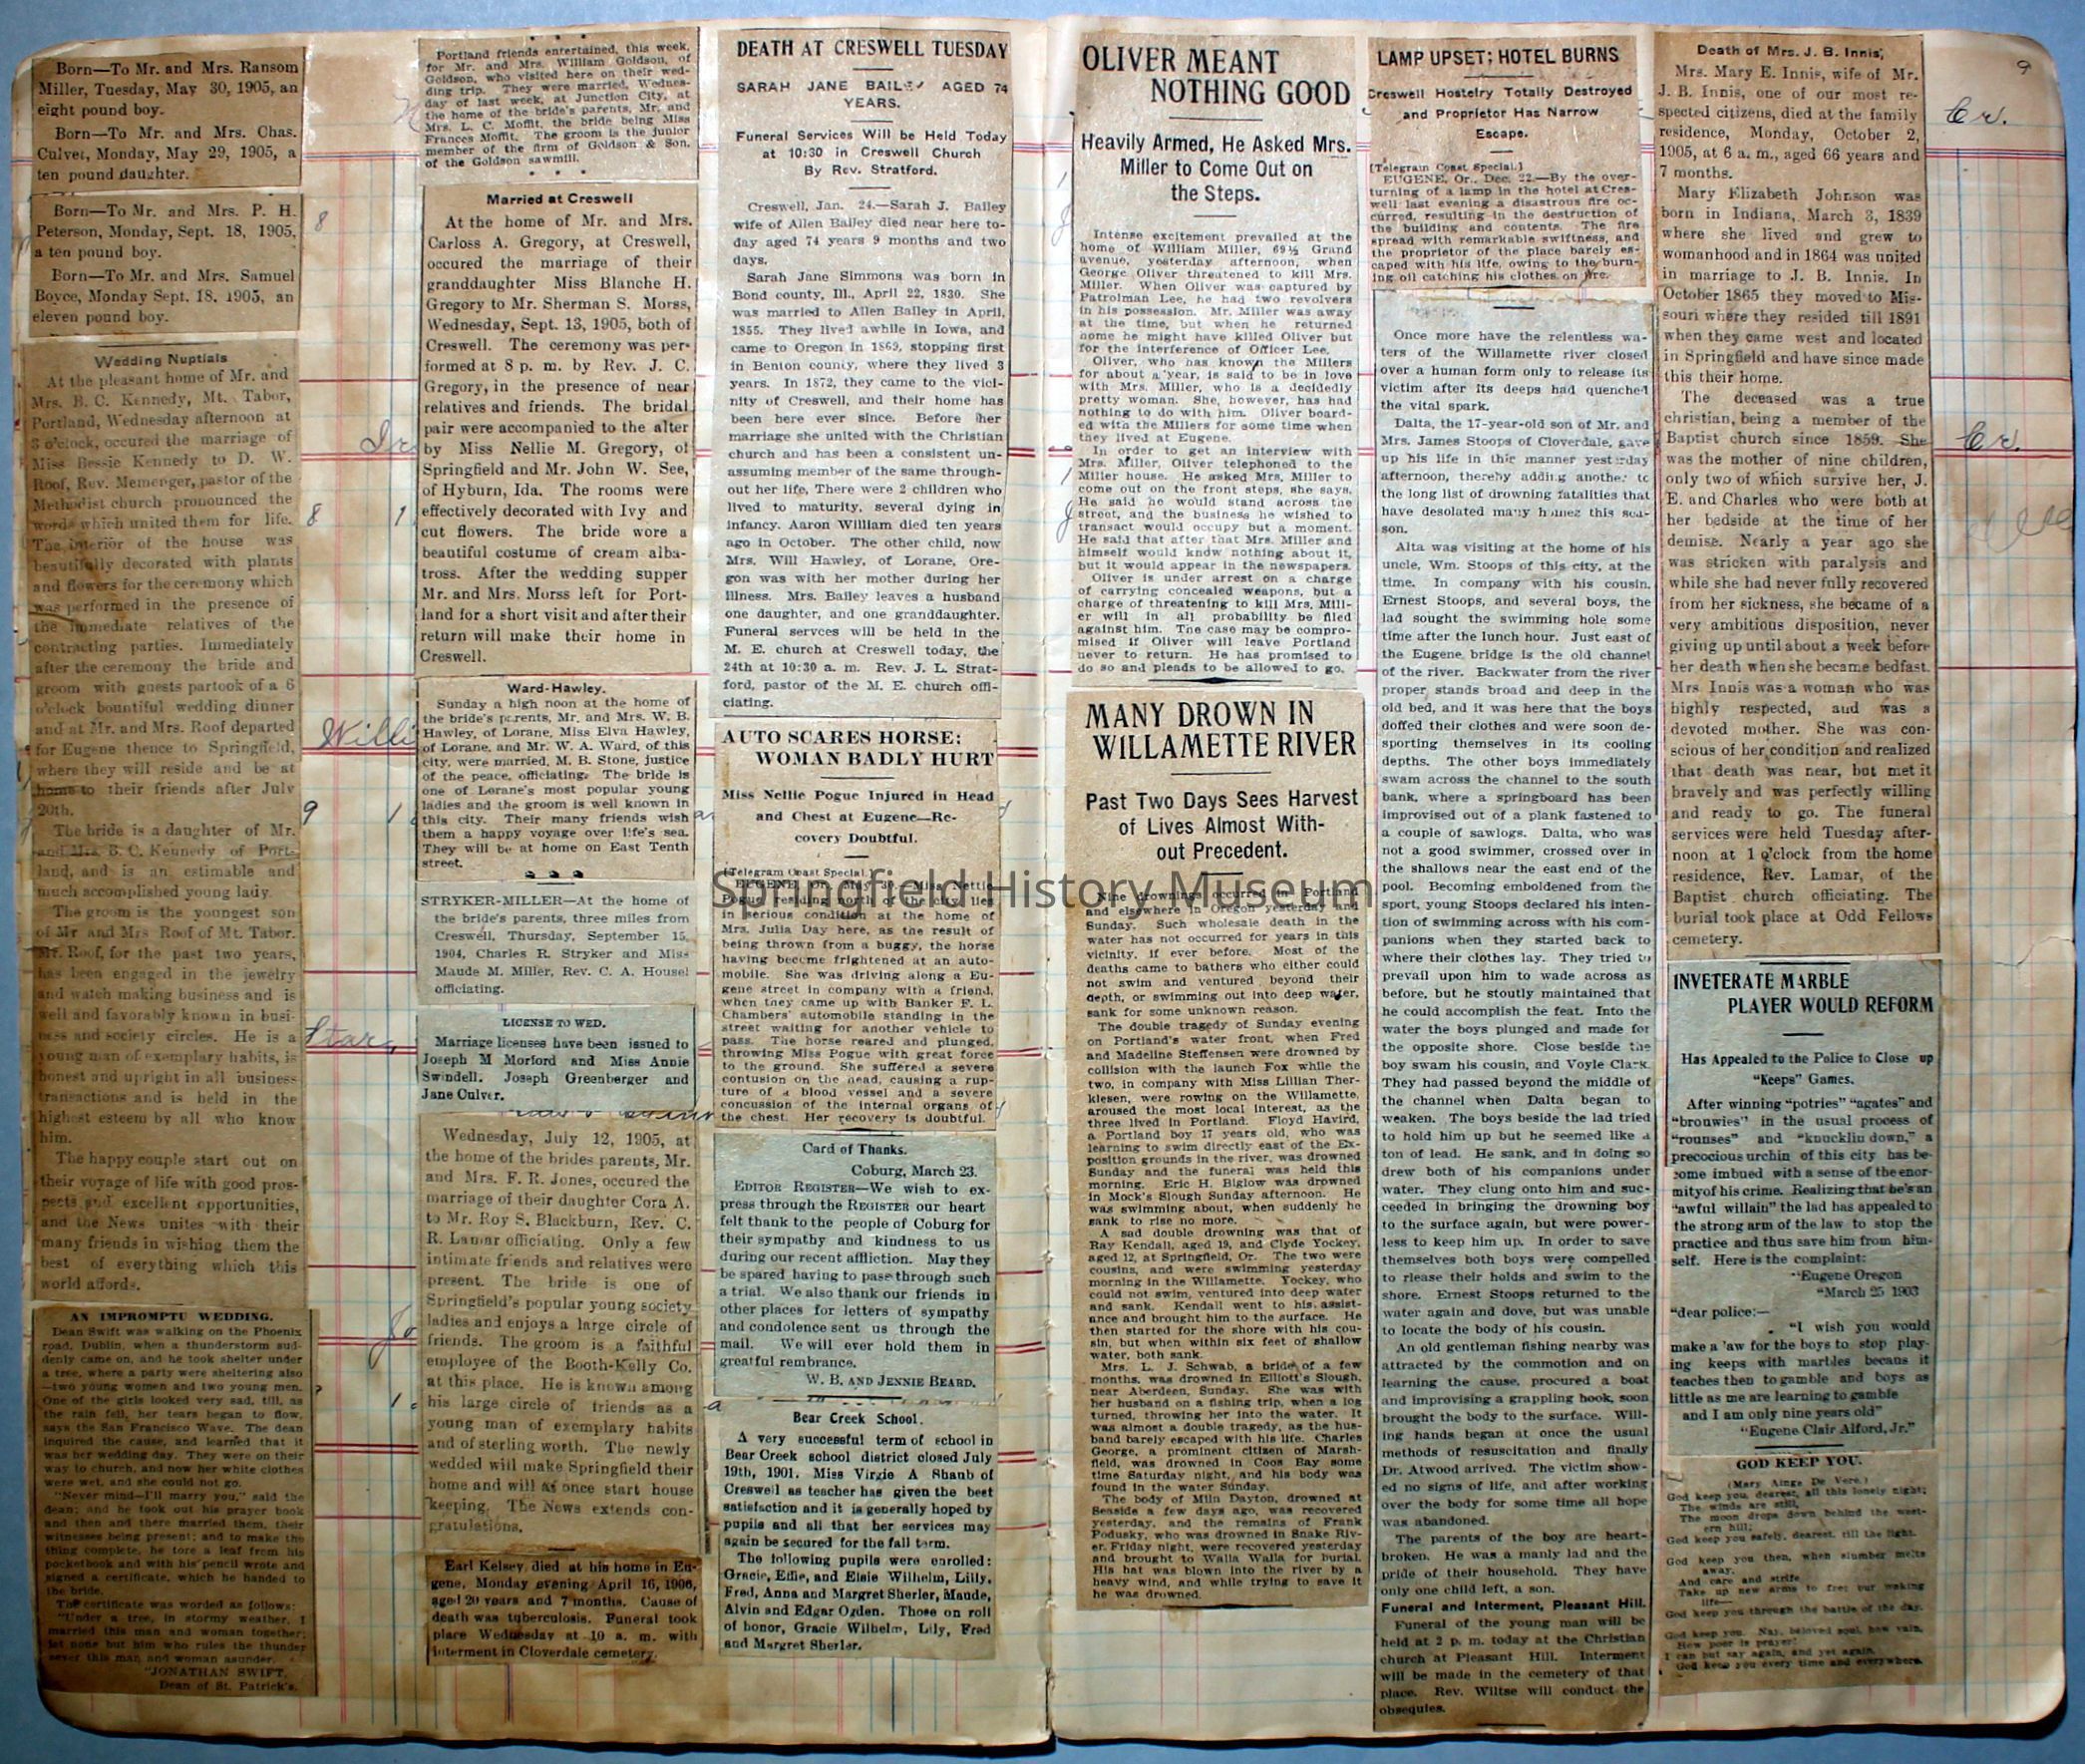 Born—To Mr. and Mrs. Ransom
Miller, Tuesday, May 30, 1905, an
eight pound boy.
Born—To Mr. and Mrs. Chas.
Culver, Monday, May 29, 1905, a
ten pound daughter.
Born—To Mr. and Mrs. P. H.
Peterson, Monday, Sept. 18, 1905,
a ten pound boy.
Born—To Mr. and Mrs. Samuel
Boyce, Monday Sept. 18, 1905, an
eleven pound boy.
Wedding Nuptials
At the pleasant home of Mr. and
Mrs. B. C. Kennedy, Mt. Tabor,
Portland, Wednesday afternoon at
3 o'clock, occured the marriage of
Miss Bessie Kennedy to D. W.
Roof, Rev. Memenger, pastor of the
Methodist church pronounced the
words which united them for life.
The interior of the house was
beautifully decorated with plants
and flowers for the ceremony which
was performed in the presence of
the immediate relatives of the
contracting parties. Immediately
after the ceremony the bride and
groom with guests partook of a 6
o'clock bountiful wedding dinner
and at Mr. and Mrs. Roof departed
for Eugene thence to Springfield,
where they will reside and be at
home to their friends after July
20th.
The bride is a daughter of Mr.
and Mrs B. C. Kennedy of Port-
land, and is an estimable and
much accomplished young lady.
The groom is the youngest son
of Mr and Mrs Roof of Mt. Tabor.
Mr. Roof, for the past two years,
has been engaged in the jewelry
and watch making business and is
well and favorably known in busi-
ness and society circles. He is a
young man of exemplary habits, is
honest and upright in all business
transactions and is held in the
highest esteem by all who know
him.
The happy couple start out on
their voyage of life with good pros-
pects and excellent opportunities,
and the News unites with their
many friends in wishing them the
best of everything which this
world affords.
AN IMPROMPTU WEDDING.
Dean Swift was walking on the Phoenix
road, Dublin, when a thunderstorm sud-
denly came on, and he took shelter under
a tree, where a party were sheltering also
—two young women and two young men.
One of the girls looked very sad, till, as
the rain fell, her tears began to flow,
says the San Francisco Wave. The dean
inquired the cause, and learned that it
was her wedding day. They were on their
way to church, and now her white clothes
were wet, and she could not go.
"Never mind—I'll marry you," said the
dean; and he took out his prayer book
and then and there married them, their
witnesses being present; and to make the
thing complete, he tore a leaf from his
pocketbook and with his pencil wrote and
signed a certificate, which he handed to
the bride.
The certificate was worded as follows:
"Under a tree, in stormy weather, I
married this man and woman together;
let none but him who rules the thunder
sever this man and woman asunder.
"JONATHAN SWIFT,
Dean of St. Patrick's.
Portland friends entertained, this week,
for Mr. and Mrs. William Goldson, of
Goldson, who visited here on their wed-
ding trip. They were married, Wednes-
day of last week, at Junction City, at
the home of the bride's parents, Mr. and
Mrs. L. C. Moffit, the bride being Miss
Frances Moffit. The groom is the junior
member of the firm of Goldson & Son,
of the Goldson sawmill.
Married at Creswell
At the home of Mr. and Mrs.
Carloss A. Gregory, at Creswell,
occured the marriage of their
granddaughter Miss Blanche H.
Gregory to Mr. Sherman S. Morss,
Wednesday, Sept. 13, 1905, both of
Creswell. The ceremony was per-
formed at 8 p. m. by Rev. J. C.
Gregory, in the presence of near
relatives and friends. The bridal
pair were accompanied to the alter
by Miss Nellie M. Gregory, of
Springfield and Mr. John W. See,
of Hyburn, Ida. The rooms were
effectively decorated with Ivy and
cut flowers. The bride wore a
beautiful costume of cream alba-
tross. After the wedding supper
Mr. and Mrs. Morss left for Port-
land for a short visit and after their
return will make their home in
Creswell.
Ward-Hawley.
Sunday a high noon at the home of
the bride's parents, Mr. and Mrs. W. B.
Hawley, of Lorane, Miss Elva Hawley,
of Lorane, and Mr. W. A. Ward, of this
city, were married, M. B. Stone, justice
of the peace, officiating. The bride is
one of Lorane's most popular young
ladies and the groom is well known in
this city. Their many friends wish
them a happy voyage over life's sea.
They will be at home on East Tenth
street.
STRYKER-MILLER—At the home of
the bride's parents, three miles from
Creswell, Thursday, September 15,
1904, Charles R. Stryker and Miss
Maude M. Miller, Rev. C. A. Housel
officiating.
LICENSE TO WED.
Marriage licenses have been issued to
Joseph M Morford and Miss Annie
Swindell. Joseph Greenberger and
Jane Culver.
Wednesday, July 12, 1905, at
the home of the brides parents, Mr.
and Mrs. F. R. Jones, occured the
marriage of their daughter Cora A.
to Mr. Roy S. Blackburn, Rev. C.
R. Lamar officiating. Only a few
intimate friends and relatives were
present. The bride is one of
Springfield's popular young society
ladies and enjoys a large circle of
friends. The groom is a faithful
employee of the Booth-Kelly Co.
at this place. He is known among
his large circle of friends as a
young man of exemplary habits
and of sterling worth. The newly
wedded will make Springfield their
home and will at once start house
keeping. The News extends con-
gratulations.
Earl Kelsey died at his home in Eu-
gene, Monday evening April 16, 1906,
aged 20 years and 7 months. Cause of
death was tuberculosis. Funeral took
place Wednesday at 10 a. m. with
interment in Cloverdale cemetery.
DEATH AT CRESWELL TUESDAY
SARAH JANE BAILEY AGED 74
YEARS.
Funeral Services Will be Held Today
at 10:30 in Creswell Church
By Rev. Stratford.
Creswell, Jan. 24.—Sarah J. Bailey
wife of Allen Bailey died near here to-
day aged 74 years 9 months and two
days.
Sarah Jane Simmons was born in
Bond county, Ill., April 22, 1830. She
was married to Allen Bailey in April,
1855. They lived awhile in Iowa, and
came to Oregon in 1869, stopping first
in Benton county, where they lived 3
years. In 1872, they came to the vici-
nity of Creswell, and their home has
been here ever since. Before her
marriage she united with the Christian
church and has been a consistent un-
assuming member of the same through-
out her life. There were 2 children who
lived to maturity, several dying in
infancy. Aaron William died ten years
ago in October. The other child, now
Mrs. Will Hawley, of Lorane, Ore-
gon was with her mother during her
illness. Mrs. Bailey leaves a husband
one daughter, and one granddaughter.
Funeral servces will be held in the
M. E. church at Creswell today, the
24th at 10:30 a. m. Rev. J. L. Strat-
ford, pastor of the M. E. church offi-
ciating.
AUTO SCARES HORSE;
WOMAN BADLY HURT
Miss Nellie Pogue Injured in Head
and Chest at Eugene—Re-
covery Doubtful.
(Telegram Coast Special.)
EUGENE, Or., May 30.—Miss Nettie
in serious condition at the home of
Mrs. Julia Day here, as the result of
being thrown from a buggy, the horse
having become frightened at an auto-
mobile. She was driving along a Eu-
gene street in company with a friend,
when they came up with Banker F. L.
Chambers' automobile standing in the
street waiting for another vehicle to
pass. The horse reared and plunged,
throwing Miss Pogue with great force
to the ground. She suffered a severe
contusion on the head, causing a rup-
ture of a blood vessel and a severe
concussion of the internal organs of
the chest. Her recovery is doubtful.
Card of Thanks.
Coburg, March 23.
EDITOR REGISTER—We wish to ex-
press through the REGISTER our heart
felt thank to the people of Coburg for
their sympathy and kindness to us
during our recent affliction. May they
be spared having to pass through such
a trial. We also thank our friends in
other places for letters of sympathy
and condolence sent us through the
mail. We will ever hold them in
greatful rembrance.
W. B. AND JENNIE BEARD.
Bear Creek School.
A very successful term of school in
Bear Creek school district closed July
19th, 1901. Miss Virgie A Shaub of
Creswell as teacher has given the best
satisfaction and it is generally hoped by
pupils and all that her services may
again be secured for the fall term.
The following pupils were enrolled:
Gracie, Effie, and Elsie Wilhelm, Lilly,
Fred, Anna and Margret Sherler, Maude,
Alvin and Edgar Ogden. Those on roll
of honor, Gracie Wilhelm, Lily, Fred
and Margret Sherler.
OLIVER MEANT
NOTHING GOOD
Heavily Armed, He Asked Mrs.
Miller to Come Out on
the Steps.
Intense excitement prevailed at the
home of William Miller, 69½ Grand
avenue, yesterday afternoon, when
George Oliver threatened to kill Mrs.
Miller. When Oliver was captured by
Patrolman Lee, he had two revolvers
in his possession. Mr. Miller was away
at the time, but when he returned
home he might have killed Oliver but
for the interference of Officer Lee.
Oliver, who has known the Millers
for about a year, is said to be in love
with Mrs. Miller, who is a decidedly
pretty woman. She, however, has had
nothing to do with him. Oliver board-
ed with the Millers for some time when
they lived at Eugene.
In order to get an interview with
Mrs. Miller, Oliver telephoned to the
Miller house. He asked Mrs. Miller to
come out on the front steps, she says.
He said he would stand across the
street, and the business he wished to
transact would occupy but a moment.
He said that after that Mrs. Miller and
himself would know nothing about it,
but it would appear in the newspapers.
Oliver is under arrest on a charge
of carrying concealed weapons, but a
charge of threatening to kill Mrs. Mill-
er will in all probability be filed
against him. The case may be compro-
mised if Oliver will leave Portland
never to return. He has promised to
do so and pleads to be allowed to go.
MANY DROWN IN
WILLAMETTE RIVER
Past Two Days Sees Harvest
of Lives Almost With-
out Precedent.
Nine drownings occurred in Portland
and elsewhere in Oregon yesterday and
Sunday. Such wholesale death in the
water has not occurred for years in this
vicinity, if ever before. Most of the
deaths came to bathers who either could
not swim and ventured beyond their
depth, or swimming out into deep water,
sank for some unknown reason.
The double tragedy of Sunday evening
on Portland's water front, when Fred
and Madeline Steffensen were drowned by
collision with the launch Fox while the
two, in company with Miss Lillian Ther-
klesen, were rowing on the Willamette,
aroused the most local interest, as the
three lived in Portland. Floyd Havird,
a Portland boy 17 years old, who was
learning to swim directly east of the Ex-
position grounds in the river, was drowned
Sunday and the funeral was held this
morning. Eric H. Biglow was drowned
in Mock's Slough Sunday afternoon. He
was swimming about, when suddenly he
sank to rise no more.
A sad double drowning was that of
Ray Kendall, aged 19, and Clyde Yockey,
aged 12, at Springfield, Or. The two were
cousins, and were swimming yesterday
morning in the Willamette. Yockey, who
could not swim, ventured into deep water
and sank. Kendall went to his assist-
ance and brought him to the surface. He
then started for the shore with his cou-
sin, but when within six feet of shallow
water, both sank.
Mrs. L. J. Schwab, a bride of a few
months, was drowned in Elliott's Slough,
near Aberdeen, Sunday. She was with
her husband on a fishing trip, when a log
turned, throwing her into the water. It
was almost a double tragedy, as the hus-
band barely escaped with his life. Charles
George, a prominent citizen of Marsh-
field, was drowned in Coos Bay some
time Saturday night, and his body was
found in the water Sunday.
The body of Miln Dayton, drowned at
Seaside a few days ago, was recovered
yesterday, and the remains of Frank
Podusky, who was drowned in Snake Riv-
er, Friday night, were recovered yesterday
and brought to Walla Walla for burial.
His hat was blown into the river by a
heavy wind, and while trying to save it
he was drowned.
LAMP UPSET; HOTEL BURNS
Creswell Hostelry Totally Destroyed
and Proprietor Has Narrow
Escape.
[Telegram Coast Special.]
EUGENE, Or., Dec. 22.—By the over-
turning of a lamp in the hotel at Cres-
well last evening a disastrous fire oc-
curred, resulting in the destruction of
the building and contents. The fire
spread with remarkable swiftness, and
the proprietor of the place barely es-
caped with his life, owing to the burn-
ing oil catching his clothes on fire.
Once more have the relentless wa-
ters of the Willamette river closed
over a human form only to release its
victim after its deeps had quenched
the vital spark.
Dalta, the 17-year-old son of Mr. and
Mrs. James Stoops of Cloverdale, gave
up his life in this manner yesterday
afternoon, thereby adding another to
the long list of drowning fatalities that
have desolated many homes this sea-
son.
Alta was visiting at the home of his
uncle, Wm. Stoops of this city, at the
time. In company with his cousin,
Ernest Stoops, and several boys, the
lad sought the swimming hole some
time after the lunch hour. Just east of
the Eugene bridge is the old channel
of the river. Backwater from the river
proper stands broad and deep in the
old bed, and it was here that the boys
doffed their clothes and were soon de-
sporting themselves in its cooling
depths. The other boys immediately
swam across the channel to the south
bank, where a springboard has been
improvised out of a plank fastened to
a couple of sawlogs. Dalta, who was
not a good swimmer, crossed over in
the shallows near the east end of the
pool. Becoming emboldened from the
sport, young Stoops declared his inten-
tion of swimming across with his com-
panions when they started back to
where their clothes lay. They tried to
prevail upon him to wade across as
before, but he stoutly maintained that
he could accomplish the feat. Into the
water the boys plunged and made for
the opposite shore. Close beside the
boy swam his cousin, and Voyle Clark.
They had passed beyond the middle of
the channel when Dalta began to
weaken. The boys beside the lad tried
to hold him up but he seemed like a
ton of lead. He sank, and in doing so
drew both of his companions under
water. They clung onto him and suc-
ceeded in bringing the drowning boy
to the surface again, but were power-
less to keep him up. In order to save
themselves both boys were compelled
to rlease their holds and swim to the
shore. Ernest Stoops returned to the
water again and dove, but was unable
to locate the body of his cousin.
An old gentleman fishing nearby was
attracted by the commotion and on
learning the cause, procured a boat
and improvising a grappling hook, soon
brought the body to the surface. Will-
ing hands began at once the usual
methods of resuscitation and finally
Dr. Atwood arrived. The victim show-
ed no signs of life, and after working
over the body for some time all hope
was abandoned.
The parents of the boy are heart-
broken. He was a manly lad and the
pride of their household. They have
only one child left, a son.
Funeral and Interment, Pleasant Hill.
Funeral of the young man will be
held at 2 p. m. today at the Christian
church at Pleasant Hill. Interment
will be made in the cemetery of that
place. Rev. Wiltse will conduct the
obsequies.
Death of Mrs. J. B. Innis,
Mrs. Mary E. Innis, wife of Mr.
J. B. Innis, one of our most re-
spected citizens, died at the family
residence, Monday, October 2,
1905, at 6 a. m., aged 66 years and
7 months.
Mary Elizabeth Johnson was
born in Indiana, March 3, 1839
where she lived and grew to
womanhood and in 1864 was united
in marriage to J. B. Innis. In
October 1865 they moved to Mis-
souri where they resided till 1891
when they came west and located
in Springfield and have since made
this their home.
The deceased was a true
christian, being a member of the
Baptist church since 1859. She
was the mother of nine children,
only two of which survive her, J.
E. and Charles who were both at
her bedside at the time of her
demise. Nearly a year ago she
was stricken with paralysis and
while she had never fully recovered
from her sickness, she became of a
very ambitious disposition, never
giving up until about a week before
her death when she became bedfast.
Mrs Innis was a woman who was
highly respected, and was a
devoted mother. She was con-
scious of her condition and realized
that death was near, but met it
bravely and was perfectly willing
and ready to go. The funeral
services were held Tuesday after-
noon at 1 o'clock from the home
residence, Rev. Lamar, of the
Baptist church officiating. The
burial took place at Odd Fellows
cemetery.
INVETERATE MARBLE
PLAYER WOULD REFORM
Has Appealed to the Police to Close up
"Keeps" Games.
After winning "potries" "agates" and
"brownies" in the usual process of
"rounses" and "knucklin down," a
precocious urchin of this city has be-
come imbued with a sense of the enor-
mity of his crime. Realizing that he's an
"awful willain" the lad has appealed to
the strong arm of the law to stop the
practice and thus save him from him-
self. Here is the complaint:
"Eugene Oregon
"March 25 1903
"dear police:—
"I wish you would
make a law for the boys to stop play-
ing keeps with marbles becaus it
teaches then to gamble and boys as
little as me are learning to gamble
and I am only nine years old"
"Eugene Clair Alford, Jr."
GOD KEEP YOU.
(Mary Ainge De Vere.)
God keep you, dearest, all this lonely night;
The winds are still,
The moon drops down behind the west-
ern hill;
God keep you safely, dearest, till the light.
God keep you then, when slumber melts
away,
And care and strife
Take up new arms to fret our waking
life—
God keep you through the battle of the day.
God keep you. Nay, beloved soul, how vain,
How poor is prayer!
I can but say again, and yet again,
God keep you every time and everywhere.
9
Cr.
Cr.
8
8
1
Willi
9
1
Star
Springfield History Museum